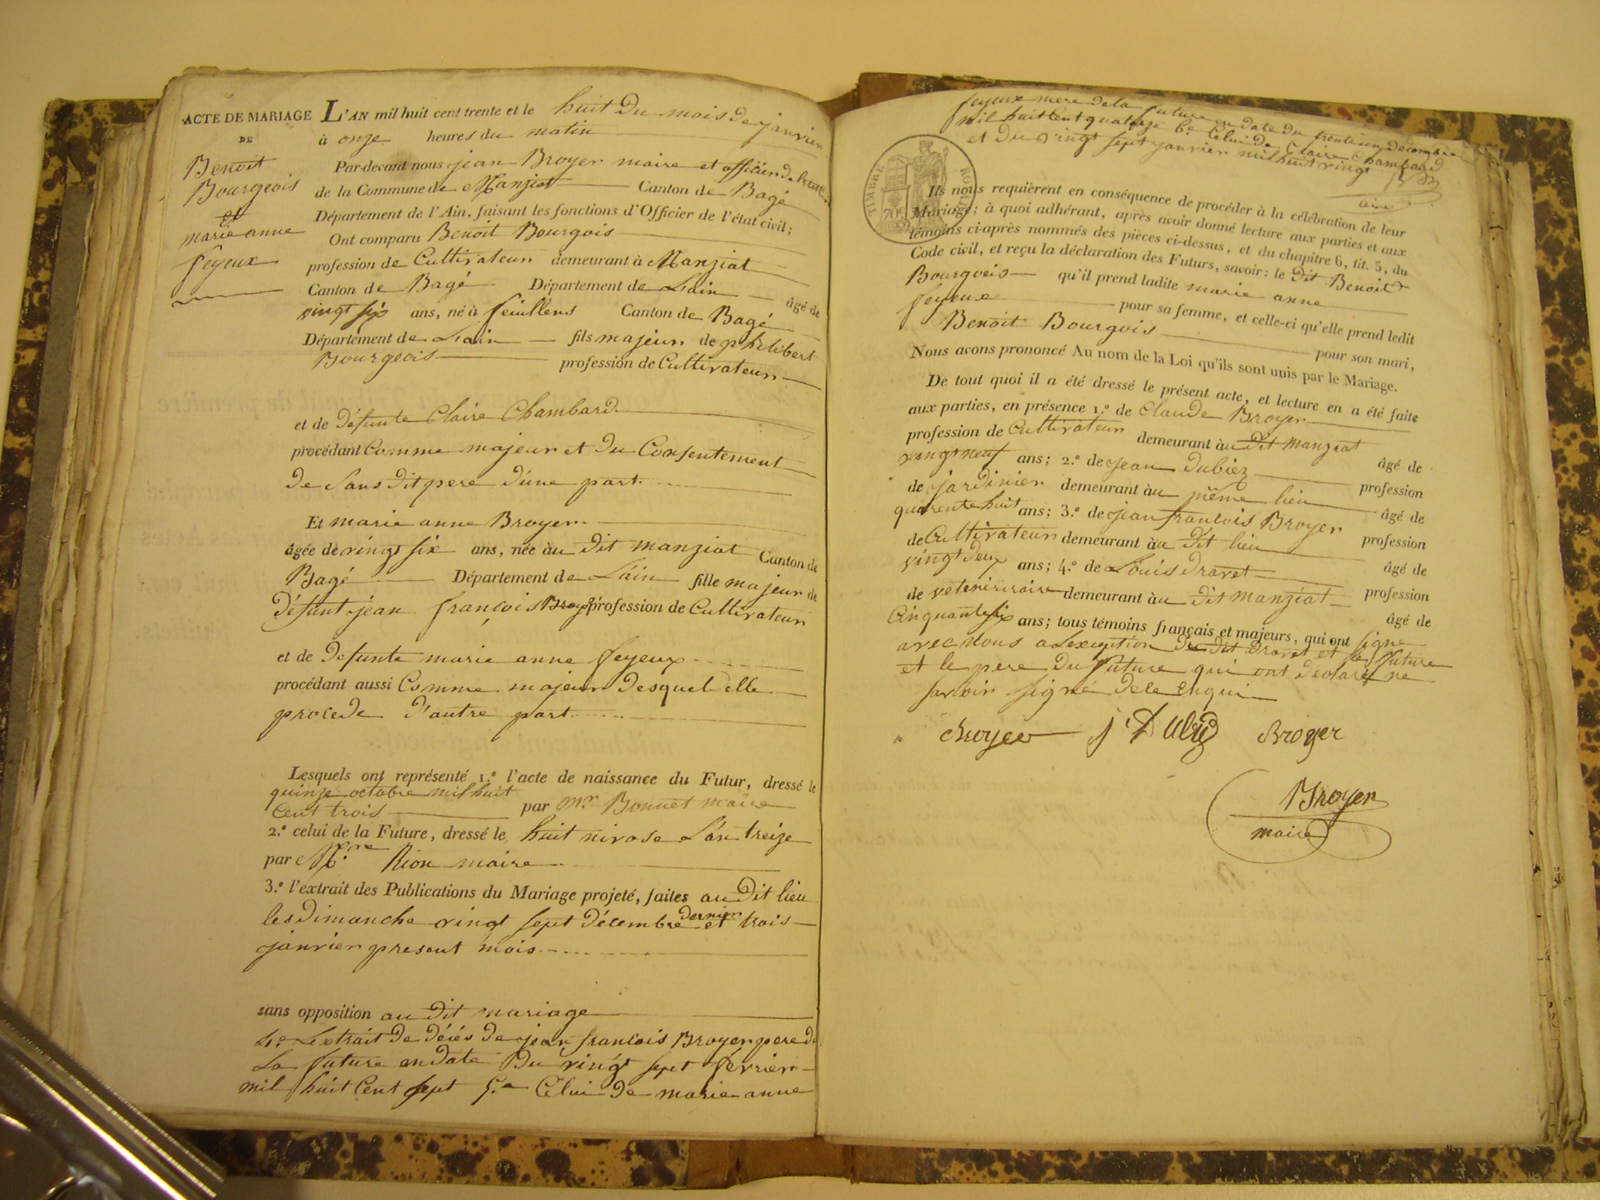 ACTE DE MARIAGE
DE
Benoit
Bourgeois
et
marie anne
feyeux
L'AN mil huit cent trente et le huit du mois de janvier
à onze heures du matin
Pardevant nous jean Broyer maire et officier de l'état
de la Commune de Manziat Canton de Bagé
Département de l'Ain, faisant les fonctions d'Officier de l'état civil;
Ont comparu Benoit Bourgois
profession de Cultivateur demeurant à Manziat
Canton de Bagé Département de Lain âgé de
vingt six ans, né à feuillens Canton de Bagé
Département de Lain fils majeur de philibert
Bourgeois profession de Cultivateur
et de défunte Claire Chambard
procédant Comme majeur et du Consentement
de Sans dit pere d'une part
Et marie anne Broyer
âgée de vingt six ans, née àu dit manziat Canton de
Bagé Département de Lain fille majeur de
défunt jean françois Broyer profession de Cultivateur
et de defunte marie anne feyeux
procédant aussi Comme majeur desquel elle
procede d'autre part
Lesquels ont représenté 1.º l'acte de naissance du Futur, dressé le
quinze octobre mil huit
Cent trois par mr Bonnet maire
2.º celui de la Future, dressé le huit nivose Lan treize
par Rion maire
3.º l'extrait des Publications du Mariage projeté, faites au dit lieu
les dimanche vingt sept décembre dernier et trois
janvier present mois
sans opposition au dit mariage
4º Lextrait de décés de jean francois Broyer pere de
La future en date du vingt sept fevrier
mil huit Cent sept 5.º Celui de marie anne
feyeux mere de la future en date du trente un decembre
mil huit cent quatorze 6º Celui de Claire Chambard
et du vingt sept janvier mil huit vingt
TIMBRE ROYAL
70
Ils nous requièrent en conséquence de procéder à la célébration de leur
Mariage; à quoi adhérant, après avoir donné lecture aux parties et aux
témoins ci-après nommés des pièces ci-dessus, et du chapitre 6, tit. 5, du
Code civil, et reçu la déclaration des Futurs, savoir: le dit Benoit
Bourgoeis qu'il prend ladite marie anne
feyeux pour sa femme, et celle-ci qu'elle prend ledit
Benoit Bourgois pour son mari,
Nous avons prononcé Au nom de la Loi qu'ils sont unis par le Mariage.
De tout quoi il a été dressé le présent acte, et lecture en a été faite
aux parties, en présence 1.º de Claude Broyer
profession de Cultivateur demeurant àu dit manziat âgé de
vingt neuf ans; 2.º de jean dubiez profession
de jardinier demeurant àu même lieu âgé de
quarente huit ans; 3.º de jean francois Broyer profession
de Cultivateur demeurant àu dit lieu âgé de
vingt deux ans; 4.º de Louis dravet profession
de veterinaire demeurant àu dit manziat âgé de
Cinquante six ans; tous témoins français et majeurs, qui ont signe
avec nous a Lexception de dit dravet et la future
et le pere du future qui ont déclaré ne
savoir signé de ce enqui
Broyer j. Dubiez Broyer
Broyer
maire